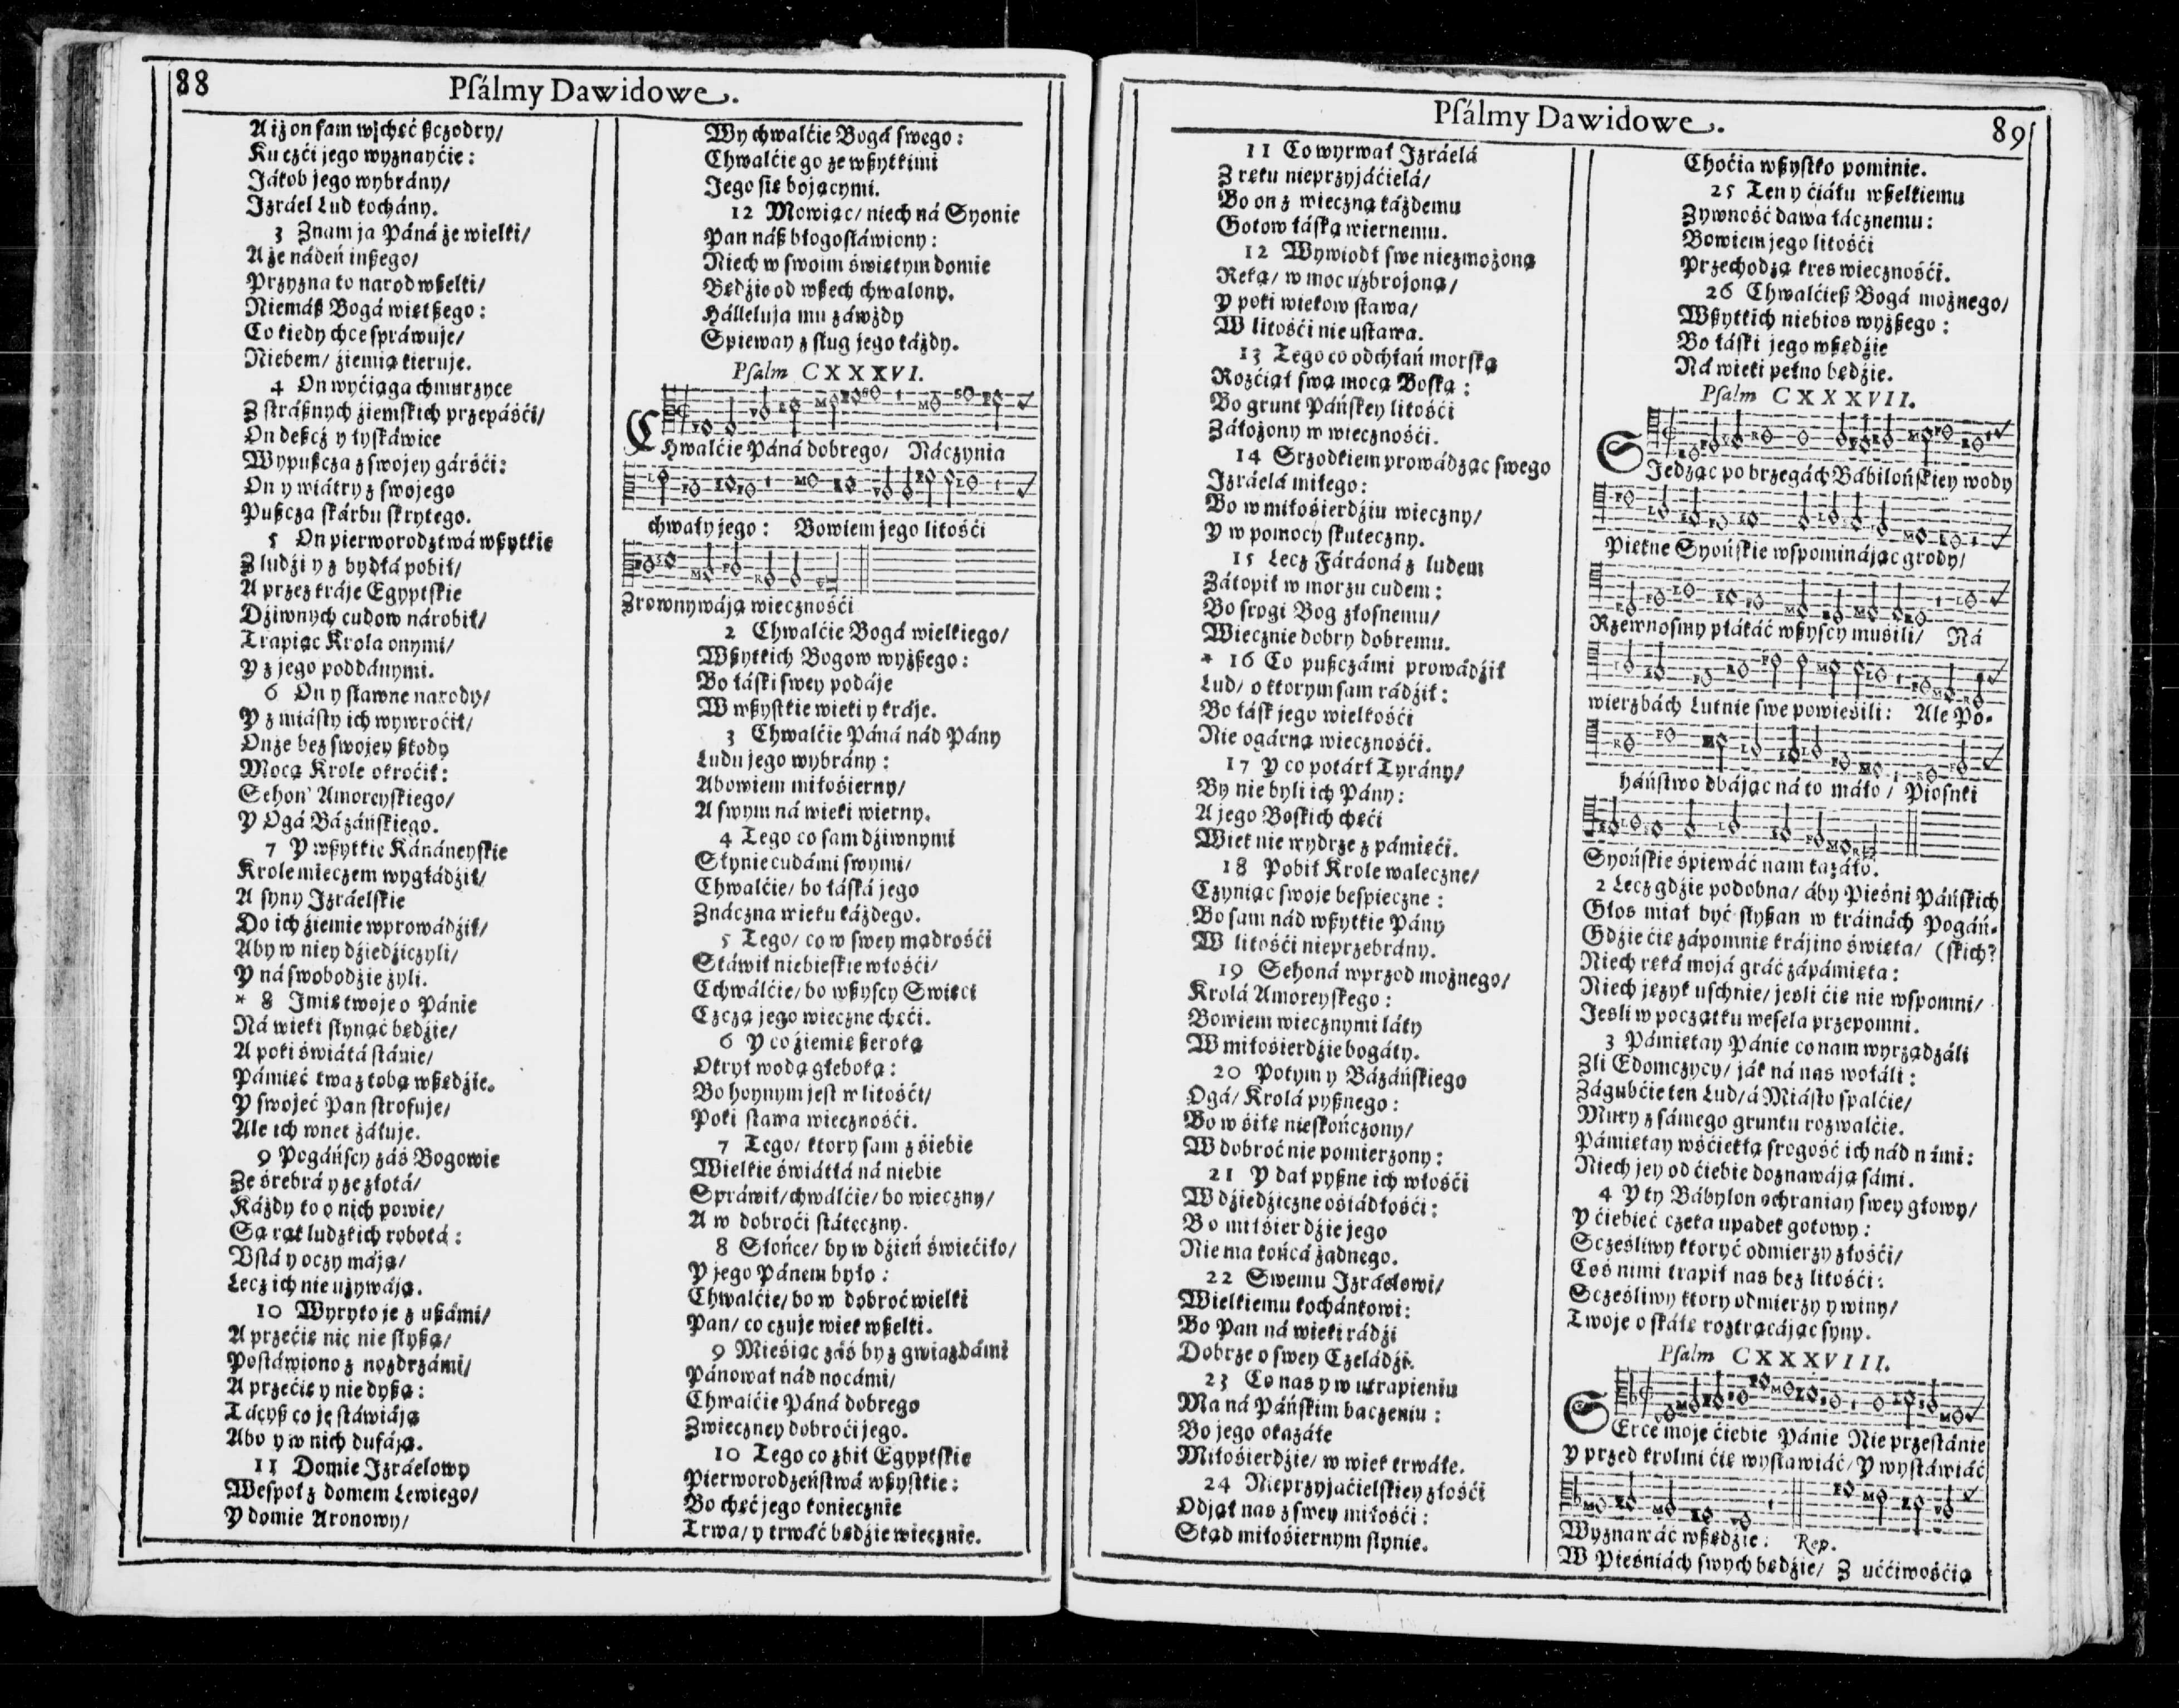 88
Pſálmy Dawidowe.
A iż on ſam wſzchęć ßczodry/
Ku czći jego wyznayćie:
Jákob jego wybrány/
Izráel Lud kochány.
3 Znam ja Páná że wielki/
A że nádeń inßego/
Przyzna to narod wßelki/
Niemáß Bogá więtßego:
Co kiedy chce ſpráwuje/
Niebem/ źiemią kieruje.
4 On wyćiąga chmurzyce
Z stráßnych źiemſkich przepáśći/
On deßcz y łyſkáwice
Wypußcza z ſwojey gárśći:
On y wiátry z ſwojego
Pußcza ſkárbu ſkrytego.
5 On pierworodztwá wßytkie
Z ludźi y z bydłá pobił/
A przez kráje Egyptſkie
Dźiwnych cudow nárobił/
Trapiąc Krola onymi/
Y z jego poddánymi.
6 On y ſławne narody/
Y z miásty ich wywroćił/
Onże bez ſwojey ßkody
Mocą Krole okroćił:
Sehon' Amoreyſkiego/
Y Ogá Bázáńſkiego.
7 Y wßytkie Kánáneyſkie
Krole mieczem wygłádźił/
A ſyny Izráelſkie
Do ich źiemie wprowádźił/
Aby w niey dźiedźiczyli/
Y ná ſwobodźie żyli.
* 8 Imię twoje o Pánie
Ná wieki ſłynąć będźie/
A poki świátá stánie/
Pámięć twa z tobą wßędźie.
Y ſwojeć Pan strofuje/
Ale ich wnet żáłuje.
9 Pogáńſcy záś Bogowie
Ze śrebrá y ze złotá/
Káżdy to o nich powie/
Są rąk ludzkich robotá:
Vstá y oczy máją/
Lecz ich nie używáją.
10 Wyryto je z ußámi/
A przećię nic nie ſłyßą/
Postáwiono z nozdrzámi/
A przećię y nie dyßą:
Tácyß co je stáwiáją
Abo y w nich dufáją.
11 Domie Izráelowy
Weſpoł z domem Lewiego/
Y domie Aronowy/
Wy chwalćie Bogá ſwego:
Chwalćie go ze wßytkimi
Jego ſię bojącymi.
12 Mowiąc/ niech ná Syonie
Pan náß błogoſłáwiony:
Niech w ſwoim świętym domie
Będźie od wßech chwalony.
Hálleluja mu záwżdy
Spieway z ſług jego káżdy.
Pſalm CXXXVI.
CHwalćie Páná dobrego/ Náczynia
chwały jego: Bowiem jego litośći
Zrownywáją wiecznośći
2 Chwalćie Bogá wielkiego/
Wßytkich Bogow wyżßego:
Bo łáſki ſwey podáje
W wßyſtkie wieki y kráje.
3 Chwalćie Páná nád Pány
Ludu jego wybrány:
Abowiem miłośierny/
A ſwym ná wieki wierny.
4 Tego co ſam dźiwnymi
Słynie cudámi ſwymi/
Chwalćie/ bo łáſká jego
Znáczna wieku káżdego.
5 Tego/ co w ſwey mądrośći
Stáwił niebieſkie włośći/
Cchwálćie/ bo wßyſcy Swięci
Czczą jego wieczne chęći.
6 Y co źiemię ßeroką
Okrył wodą głęboką:
Bo hoynym jest w litośći/
Poki stawa wiecznośći.
7 Tego/ ktory ſam z śiebie
Wielkie świátłá ná niebie
Spráwił/ chwálćie/ bo wieczny/
A w dobroći státeczny.
8 Słońce/ by w dźień świećiło/
Y jego Pánem było:
Chwalćie/ bo w dobroć wielki
Pan/ co czuje wiek wßelki.
9 Mieśiąc záś by z gwiazdámi
Pánował nád nocámi/
Chwalćie Páná dobrego
Zwieczney dobroći jego.
10 Tego co zbił Egyptſkie
Pierworodzeństwá wßyſtkie:
Bo chęć jego koniecznie
Trwa/ y trwáć będźie wiecznie.
Pſálmy Dawidowe.
89
11 Co wyrwał Izráelá
Z ręku nieprzyjáćielá/
Bo on z wieczną káżdemu
Gotow łáſką wiernemu.
12 Wywiodł ſwe niezmożoną
Ręką/ w moc uzbrojoną/
Y poki wiekow stawa/
W litośći nie ustawa.
13 Tego co odchłań morſką
Rozćiął ſwą mocą Boſką:
Bo grunt Páńſkey litośći
Záłożony w wiecznośći.
14 Srzodkiem prowádząc ſwego
Izráelá miłego:
Bo w miłośierdźiu wieczny/
Y w pomocy ſkuteczny.
15 Lecz Fáráoná z ludem
Zátopił w morzu cudem:
Bo ſrogi Bog złoſnemu/
Wiecznie dobry dobremu.
* 16 Co pußczámi prowádźił
Lud/ o ktorym ſam rádźił:
Bo łáſk jego wielkośći
Nie ogárną wiecznośći.
17 Y co potárł Tyrány/
By nie byli ich Pány:
A jego Boſkich chęći
Wiek nie wydrze z pámięći.
18 Pobił Krole waleczne/
Czyniąc ſwoje beſpieczne:
Bo ſam nád wßytkie Pány
W litośći nieprzebrány.
19 Sehoná wprzod możnego/
Krolá Amoreyſkego:
Bowiem wiecznymi láty
W miłośierdźie bogáty.
20 Potym y Bázáńſkiego
Ogá/ Krolá pyßnego:
Bo w śiłę nieſkończony/
W dobroć nie pomierzony:
21 Y dał pyßne ich włośći
W dźiedźiczne ośiádłośći:
Bo miłśierdźie jego
Nie ma końcá żadnego.
22 Swemu Izráelowi/
Wielkiemu kochánkowi:
Bo Pan ná wieki rádźi
Dobrze o ſwey Czeládźi.
23 Co nas y w utrapieniu
Ma ná Páńſkim baczeniu:
Bo jego okazáłe
Miłośierdźie/ w wiek trwáłe.
24 Nieprzyjaćielſkiey złośći
Odjął nas z ſwey miłośći:
Stąd miłośiernym ſłynie.
Choćia wßyſtko pominie.
25 Ten y ćiáłu wßelkiemu
Zywność dawa łácznemu:
Bowiem jego litośći
Przechodzą kres wiecznośći.
26 Chwalćieß Bogá możnego/
Wßytkich niebios wyżßego:
Bo łáſki jego wßędźie
Ná wieki pełno będźie.
Pſalm CXXXVII.
SIedząc po brzegách Bábilońſkiey wody
Piękne Syońſkie wſpomináiąc grody/
Rzewnoſmy płákáć wßyſcy muśili/ Ná
wierzbách Lutnie ſwe powieśili: Ale Po-
háństwo dbájąc ná to máło/ Pioſnki
Syońſkie śpiewáć nam kazáło.
2 Lecz gdźie podobna/ áby Pieśni Páńſkich
Głos miał być ſłyßan w kráinách Pogáń-
Gdźie ćię zápomnię krájino święta/ (ſkich?
Niech ręká mojá gráć zápámięta:
Niech język uſchnie/ jeſli ćię nie wſpomni/
Jeſli w początku weſela przepomni.
3 Pámiętay Pánie co nam wyrządzáli
Zli Edomczycy/ ják ná nas wołáli:
Zágubćie ten Lud/ á Miásto ſpalćie/
Mury z ſámego gruntu rozwalćie.
Pámiętay wśćiekłą ſrogość ich nád námi:
Niech jey od ćiebie doznawáją ſámi.
4 Y ty Bábylon ochraniay ſwey głowy/
Y ćiebieć czeka upadek gotowy:
Sczęśliwy ktoryć odmierzy złośći/
Coś nimi trapił nas bez litośći:
Sczęśliwy ktory odmierzy y winy/
Twoje o ſkáłę roztrącájąc ſyny.
Pſalm CXXXVIII.
SErce moje ćiebie Pánie Nie przestánie
Y przed krolmi ćię wyſławiáć/ Y wyſtáwiáć
Wyznawáć wßędźie: Rep.
W Pieśniách ſwych będźie/ Z uććiwośćią